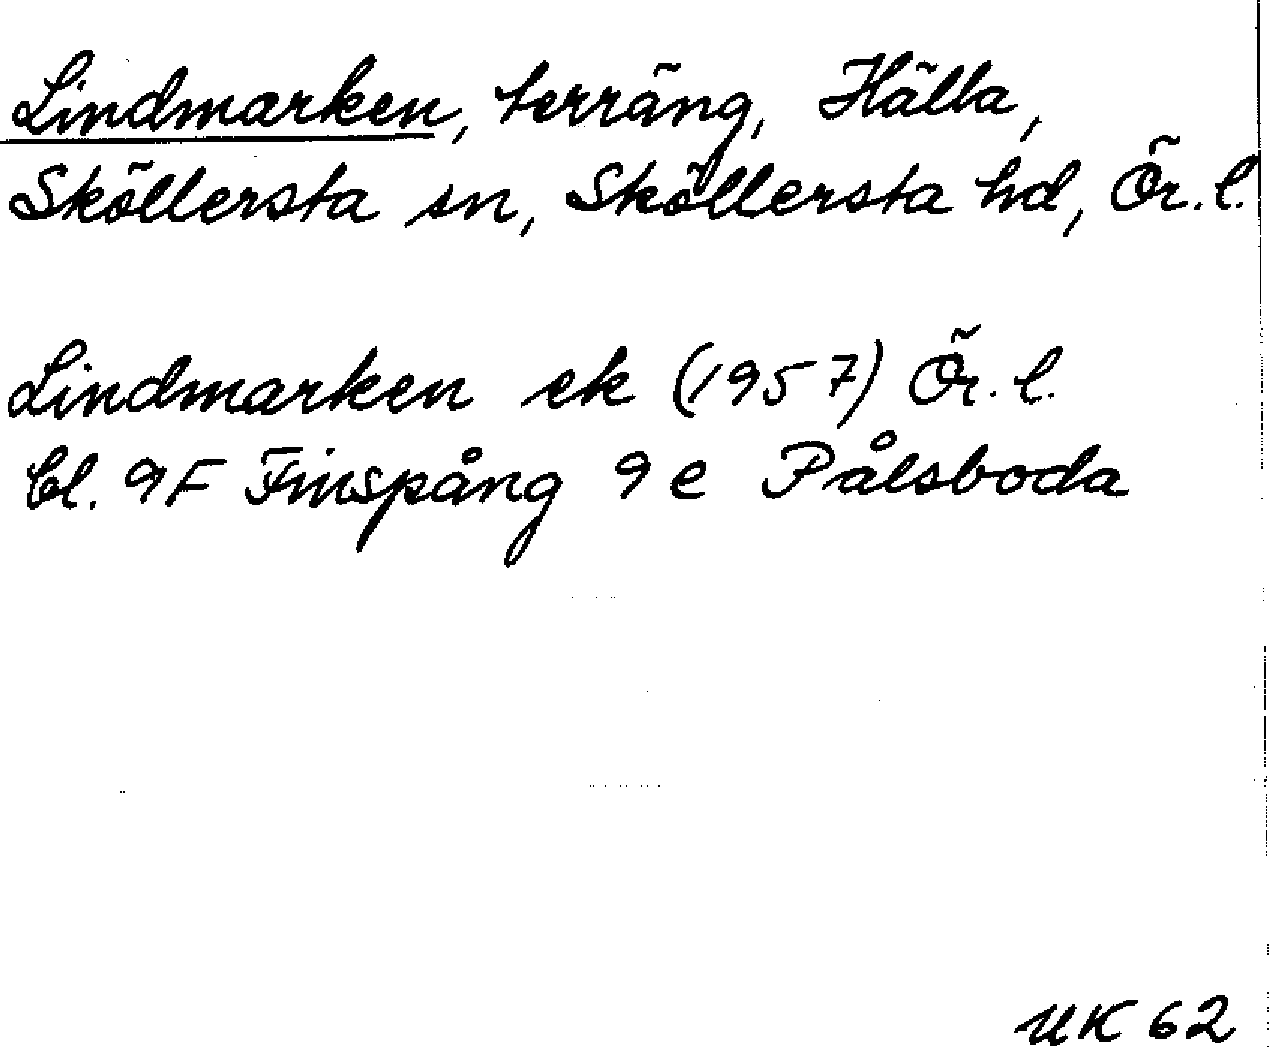 Lindmarken, terräng, Hälla,
Sköllersta sn, Sköllersta hd, Ör. l.
Lindmarken ek (1957) Ör. l.
bl. 9F Finspång 9 e Pålsboda
UK 62